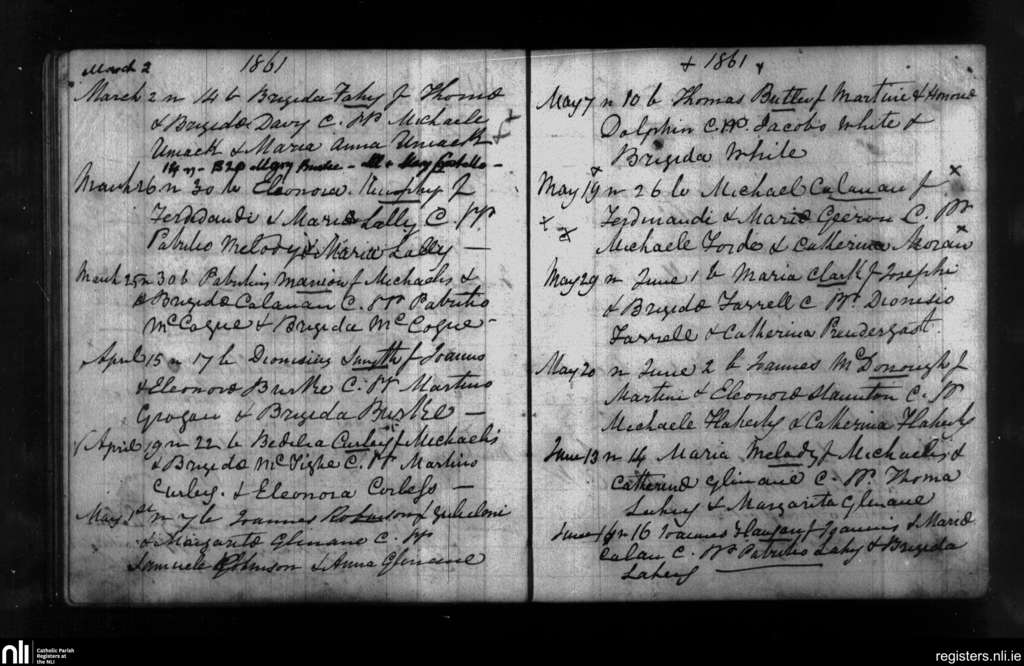 1861
March 2
March 2 n 14 b Brigida Fahy f Thomæ
& Brigidæ Davy C. PP Michaele
Umack & Maria Anna Umack
March 26 n 30 b Eleonora Murphy f
Ferdinandi & Mariæ Lally C. PP
Patritio Melody & Maria Lally —
March 25 n 30 b Patritius Manion f Michaelis &
& Brigidæ Calanan C. PP Patritio
McCogue & Brigida McCogue —
April 15 n 17 b Dionisius Smyth f Joannis
& Eleonoræ Burke C. PP Martino
Grogan & Brigida Burke —
April 19 n 22 b Bedelia Curley f Michaelis
& Brigidæ McTighe C. PP Martino
Curley & Eleonora Corless —
May 1st n 7 b Joannes Robinson f Gulielmi
& Margaritæ Glinane C. PP
Samuele Johnson & Anna Glinane
+ 1861
May 7 n 10 b Thomas Butler f Martini & Honoræ
Dolphin C PP. Jacobo White &
Brigida White
May 19 n 26 b Michael Calanan f
Ferdinandi & Mariæ Geeron C. PP
Michaele Forde & Catherina Moran
May 29 n June 1 b Maria Clark f Josephi
& Brigidæ Farrell C PP. Dionisio
Farrell & Catherina Prendergast.
May 20 n June 2 b Joannes McDonough f
Martini & Eleonoræ Staunton C. PP
Michaele Flaherty & Catherina Flaherty
June 13 n 14 Maria Melody f Michaelis &
Catherinæ Glinane C. PP. Thoma
Lahey & Margarita Glinane
June 16 n 16 Joannes f Joannis & Mariæ
Calan C. PP Patritio Lahy & Brigida
Lahey
nli
Catholic Parish
Registers at
the NLI
registers.nli.ie